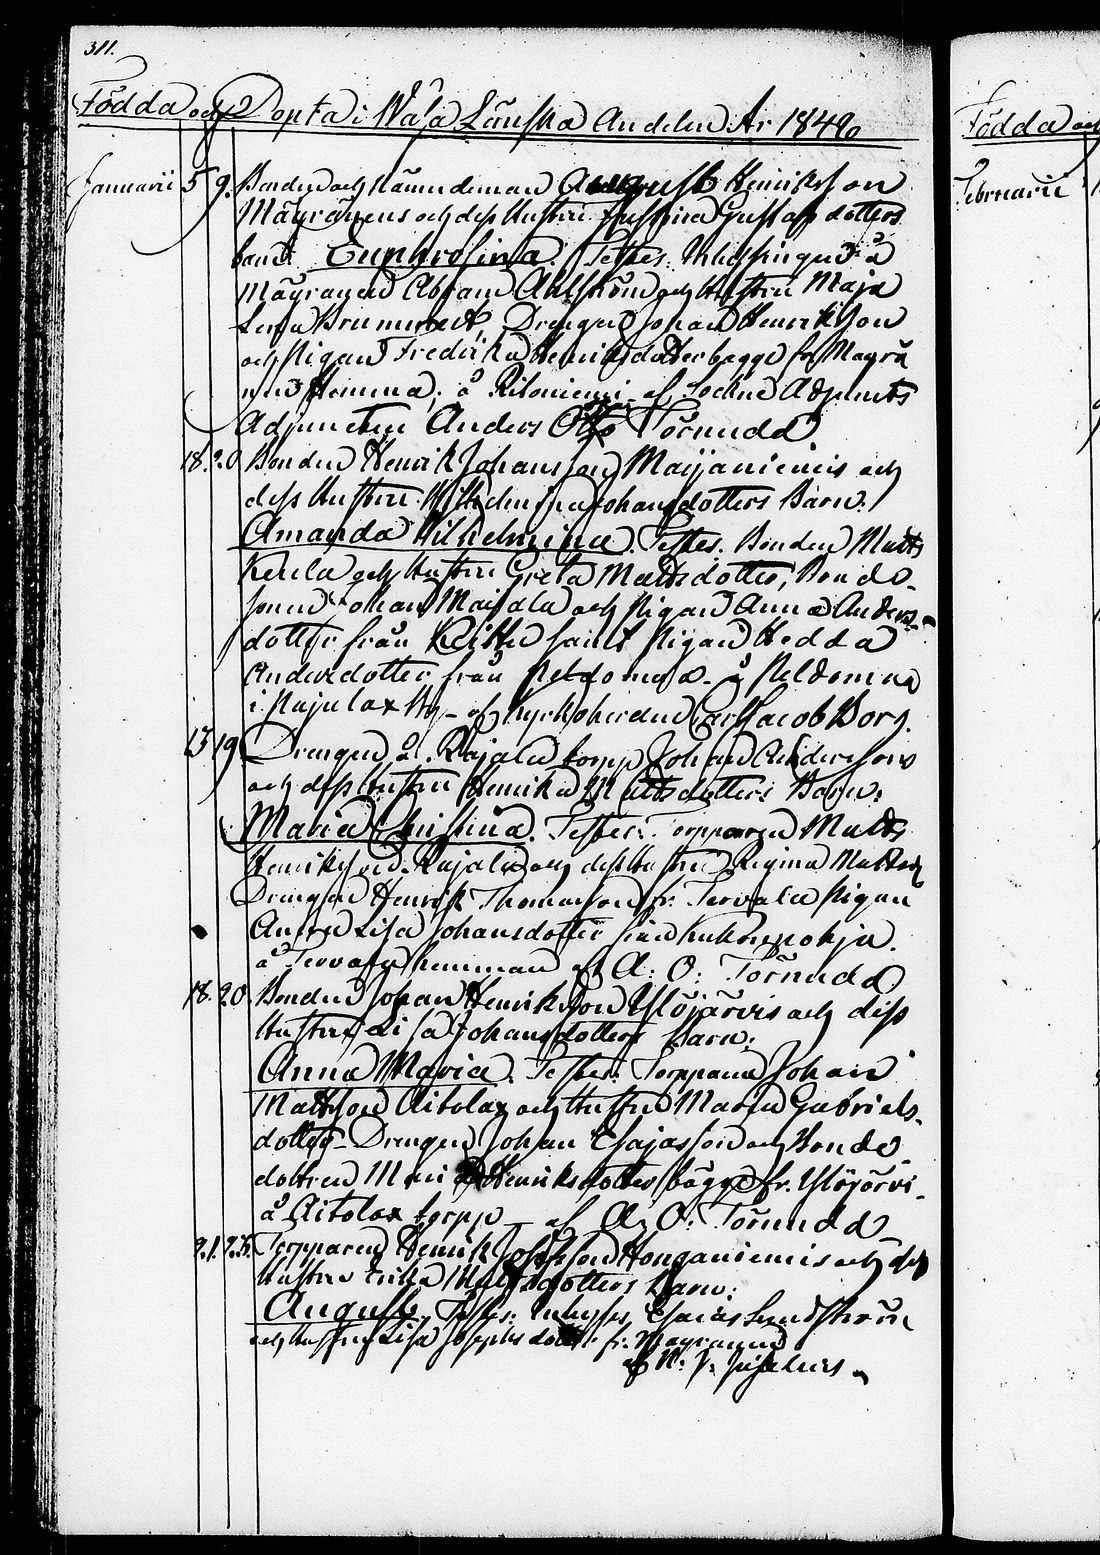 311.
Födda och Döpta i Wasa Länska Andelen År 1840
Födda och
Januarii 5 9. Bonden och Nämndeman August Henriksson
Mäyränens och dess Hustru Justina Gustafsdotters
barn: Euphrosina. Testes. Inhysingen å
Mäyränen Abram Ahlström och Hustru Maja
Lena Brummert, Drengen Johan Henriksson
och Pigan Fredrika Henriksdotter begge fr. Mäyrä
nen Hemma; å Riloniemi af Sockne Adjuncts
Adjuncten Anders Otto Törnudd
18. 20 Bonden Henrik Johansson Maijaniemis och
dess Hustru Wilhelmina Johansdotters Barn:
Amanda Wilhelmina. Testes. Bonden Matts
Keula och Hustru Greta Mattsdotter, Bonde-
sonen Johan Maijala och Pigan Anna Anders-
dotter från samt Pigan Hedda
Andersdotter från Peldomaa å Peldomaa
i Pajulax By af Kyrkoherden Carl Jacob Borg.
15 19 Drengen å Rajala torp Johan Anderssons
och dess Hustru Henrika Mattsdotters Barn:
Maria Christina. Testes: Torpparen Matts
Henriksson Rajala och dess Hustru Regina Mattsd.
Drengen Henrik Thomasson fr. Tervala Pigan
Anna Lisa Johansdotter från
å hemman af A: O: Törnudd
18. 20. Bonden Johan Henriksson Ylöjärvis och dess
Hustru Lisa Johansdotters Barn:
Anna Maria. Testes: Torpparen Johan
Mattsson Aitolax och Hustrun Maria Gabriels-
dotter Drengen Johan Esajasson och Bonde
dottren Maria Henriksdotter bägge fr. Ylöjärvi.
å Aitolax torpp af A. O: Törnudd
21. 25. Torpparen Henrik Josephsson Honganiemis och dess
Hustru Erika Mattsdotters Barn:
August. Testes: Inhyses Esaias Lundström
och Hustru Lisa Josephsdotter fr. Mäyränen
af
Februarii